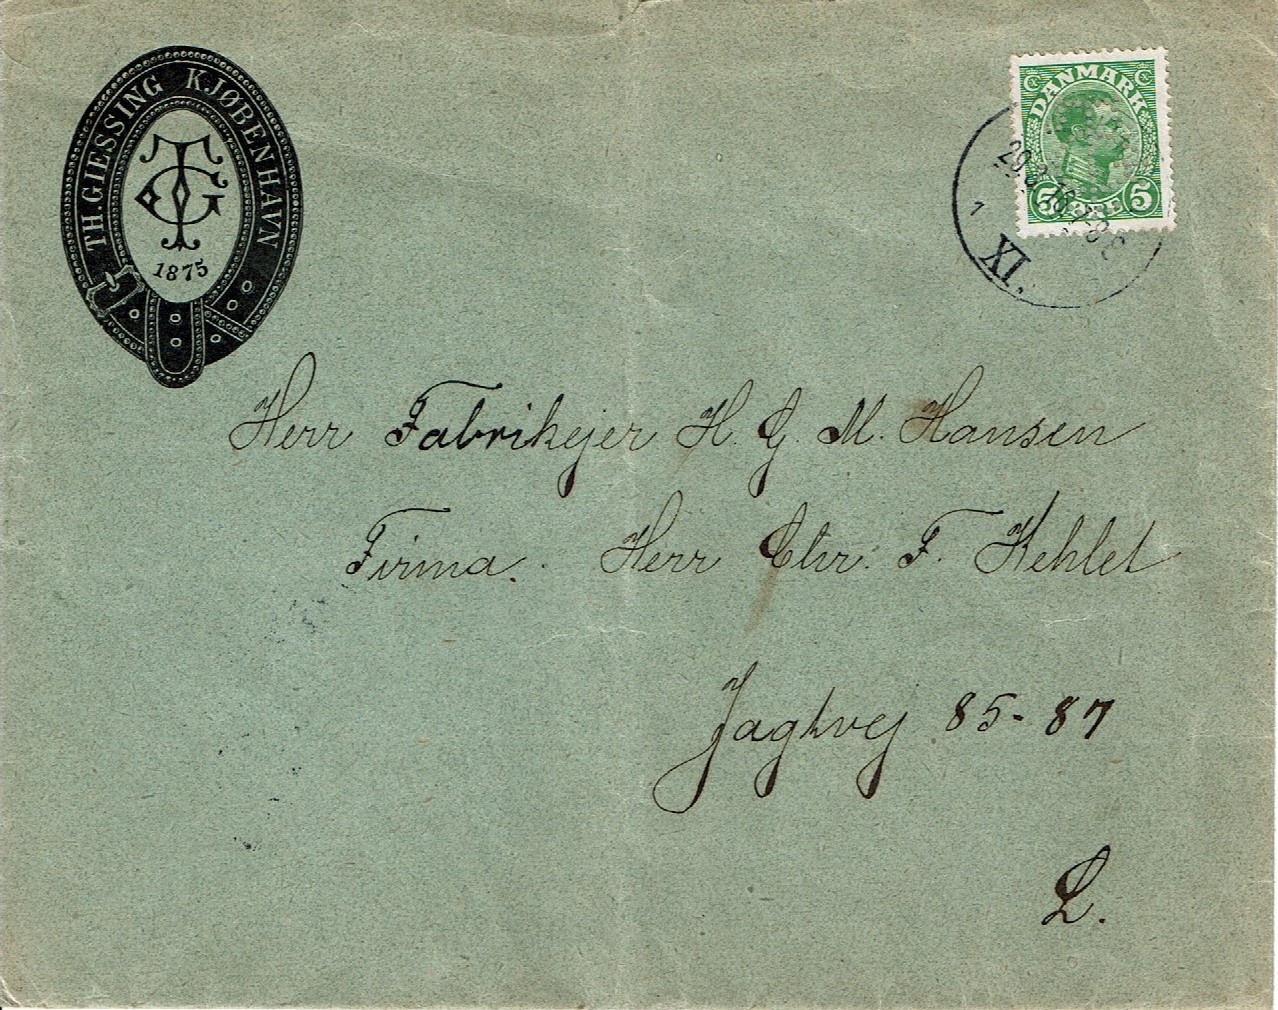 TH. GIESSING KJØBENHAVN
TG
1875
DANMARK
5 5
IX.
1
Herr Fabrikejer H. G. M. Hansen
Firma. Herr Chr. F. Kehlet
Jagtvej 85-87
L.